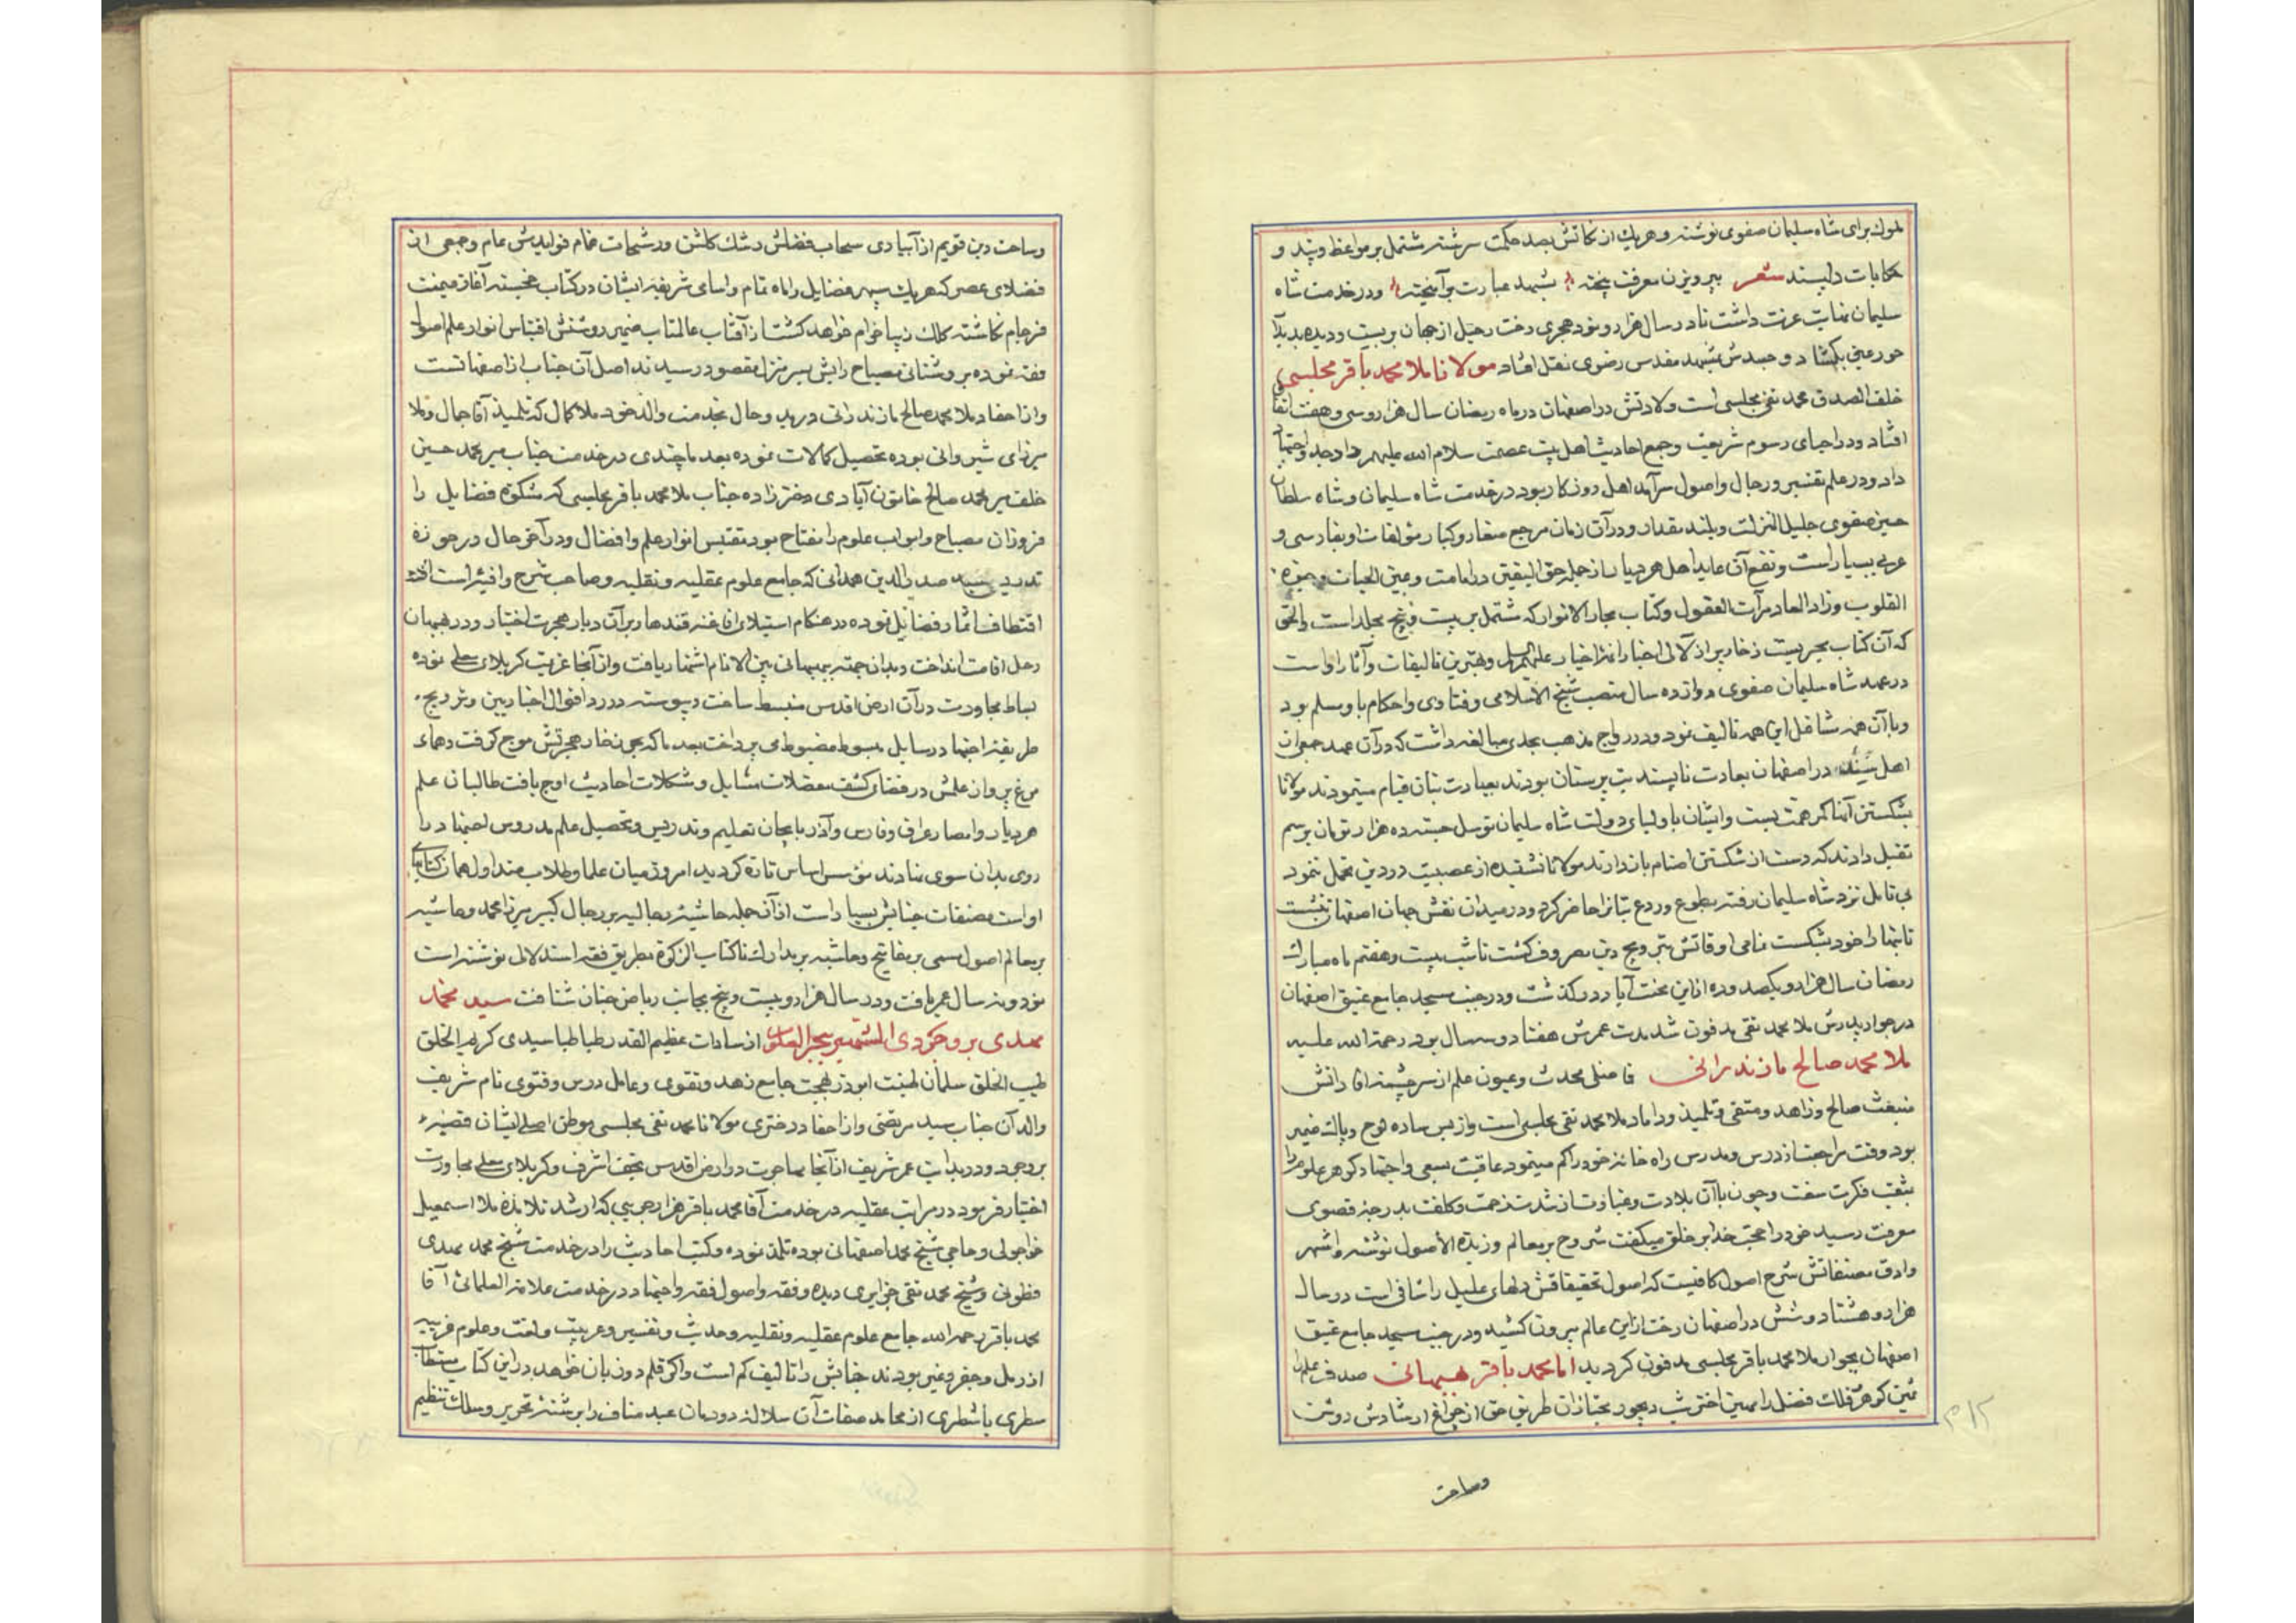 ملوك برای شاه سلیمان صفوی نوشته و هریك از نكاتش بصد حكمت سرشته مشتمل بر مواعظ و پند و
حکایات دلپسند شعر بپرویزن معرفت بیخته بشهد عبارت برآمیخته و در خدمت شاه
سلیمان بغایت عزت داشت تا در سال هزار و نود هجری رخت رحیل از جهان بربست و دیده بدیدار
حور عین بگشاد و جسدش بمشهد مقدس رضوی نقل افتاد مولانا ملا محمد باقر مجلسی
خلف الصدق محمد تقی مجلسی است ولادتش در اصفهان در ماه رمضان سال هزار و سی و هفت اتفاق
افتاد و در احیای رسوم شریعت و جمع احادیث اهل بیت عصمت سلام الله علیهم داد جد و اجتهاد
داد و در علم تفسیر و رجال و اصول سرآمد اهل روزکار بود در خدمت شاه سلیمان و شاه سلطان
حسین صفوی جلیل المنزلت و بلند مقدار و در آن زمان مرجع صغار و کبار مؤلفات او بفارسی و
عربی بسیار است و نفع آن عاید اهل هر دیار از جمله حق الیقین در امامت و عین الحیات و
القلوب و زاد المعاد مرآت العقول و کتاب بحار الانوار که مشتمل بر بیست و پنج مجلد است والحق
که آن کتاب بحریست ذخار پر از لآلی اخبار ائمه اخیار علیهم السلم و بهترین تالیفات و آثار اوست
در عهد شاه سلیمان صفوی دوازده سال منصب شیخ الاسلامی و فتاوی و احکام باو مسلم بود
و با آن همه مشاغل این همه تالیف نمود و در رواج مذهب بحدی مبالغه داشت که در آن عهد جمعی از
اهل در اصفهان بعادت ناپسند بت پرستان بودند بعبادت بتان قیام مینمودند مولانا
بشکستن آنها کمر همت بست و ایشان باولیای دولت شاه سلیمان توسل جسته ده هزار تومان برسم
تقبل دادند که دست از شکستن اصنام بازدارند مولانا نشنیده از عصبیت در دین تحمل ننمود
بی تامل نزد شاه سلیمان رفته بطوع و ردع بتانرا حاضر کرد و در میدان نقش جهان اصفهان
تا بتها را خود بشکست تمامی اوقاتش بترویج دین مصروف گشت تا شب بیست و هفتم ماه مبارك
رمضان سال هزار و یکصد و ده از این محنت آباد درگذشت و در جنب مسجد جامع عتیق اصفهان
در جوار پدرش ملا محمد تقی مدفون شد مدت عمرش هفتاد و سه سال بود رحمة الله علیه
ملا محمد صالح مازندرانی فاضلی محدث و عیون علم از سرچشمه دانش
منبعث صالح و زاهد و متقی و تلمیذ و داماد ملا محمد تقی مجلسی است و از بس ساده لوح و پاك ضمیر
بود وقت مراجعت از درس و مدرس راه خانه خود را کم مینمود عاقبت بسعی و اجتهاد کوهر علوم را
بثقب فکرت سفت و چون با آن بلادت و غباوت از شدت زحمت و کلفت بدرجه قصوی
معرفت رسید خود را حجت خدا بر خلق میکفت شروح بر معالم و زبدة الاصول نوشته و اشهر
و ادق مصنفاتش شرح اصول کافیست که اصول تحقیقاتش دلهای علیل را شافی است در سال
هزار و هشتاد و شش در اصفهان رخت از این عالم بیرون کشید و در جنب مسجد جامع عتیق
اصفهان بجوار ملا محمد باقر مجلسی مدفون کردید اما محمد باقر بهبهانی صدف علم را
ثمین کوهر فلك فضل را مهین اختر شب دیجور مجتازان طریق حق از چراغ ارشادش روشن
وساحت
وساحت دین قویم از آبیاری سحاب فضلش رشك گلشن و رشحات غمام فوایدش عام و جمعی از
فضلای عصر که هریك سپهر فضایل را ماه تمام و اسامی شریفه ایشان در کتاب خجسته آغاز میمنت
فرجام نکاشته کلك زیبا خرام خواهد گشت از آفتاب عالمتاب ضمیر روشنش اقتباس انوار علم اصول
فقه نموده بروشنائی مصباح رایش بسر منزل مقصود رسیدند اصل آن جناب از اصفهانست
و از احفاد ملا محمد صالح مازندرانی در بدو حال بخدمت والد خود ملا کمال که تلمیذ آقا جمال و ملا
میرزای شیروانی بوده تحصیل کمالات نموده بعد ما چندی در خدمت جناب میر محمد حسین
خلف میر محمد صالح خاتون آبادی دختر زاده جناب ملا محمد باقر مجلسی که مشکوة فضایل را
فروزان مصباح و ابواب علوم را مفتاح بود مقتبس انوار علم و افضال و در آخر حال در حوزه
تدریس سید صدر الدین همدانی که جامع علوم عقلیه و نقلیه و صاحب شرح وافیه است
اقتطاف اثمار فضائل نموده در هنکام استیلای افاغنه قندهار بر آن دیار هجرت اختیار و در بهبهان
رحل اقامت انداخت و بدان جهة ببهبهانی بین الانام اشتهار یافت و از آنجا عزیمت کربلای معلی نموده
بساط مجاورت در آن ارض اقدس منبسط ساخت و پیوسته در رد اقوال اخباریین و ترویج
طریقه اجتهاد رسایل مبسوط مضبوط می پرداخت بعد ما که بحر ذخار هجرتش موج گرفت و همای
مرغ پرواز علمش در فضای کشف معضلات مسایل و مشکلات احادیث اوج یافت طالبان علم
هر دیار و امصار عراق و فارس و آذربایجان تعلیم و تدریس و تحصیل علم مدروس اجتهاد را
روی بدان سوی نهادند مؤسس اساس تازه کردید امروز میان علما و طلاب متداول همان کتابهای
اواست مصنفات جنابش بسیار است از آنجمله حاشیه رجالیه بر رجال کبیر میرزا محمد و حاشیه
بر معالم اصول مسمی بر مفاتیح و حاشیه بر مدارك تا کتاب الزکوة بطریق فقه استدلالی نوشته است
نود و نه سال عمر یافت و در سال هزار و دویست و پنج بجانب ریاض جنان شتافت سید محمد
مهدی بروجردی المشتهر ببحر العلوم از سادات عظیم القدر طباطبا سیدی کریم الخلق
طیب الخلق سلمان طینت ابوذر لهجت جامع زهد و تقوی و عامل درس و فتوی نام شریف
والد آن جناب سید مرتضی و از احفاد دختری مولانا محمد تقی مجلسی موطن اصلی ایشان قصبه
بروجرد و در بدایت عمر شریف از آنجا مهاجرت در ارض اقدس نجف اشرف و کربلای معلی مجاورت
اختیار فرمود در مراتب عقلیه در خدمت آقا محمد باقر هزارجریبی که ارشد تلامذه ملا اسمعیل
خواجوئی و حاجی شیخ محمد اصفهانی بوده تلمذ نموده و کتب احادیث را در خدمت شیخ محمد مهدی
فطونی و شیخ محمد تقی دیده و فقه و اصول فقه و اجتهاد در خدمت علامة العلمائی آقا
محمد باقر رحمه الله جامع علوم عقلیه و نقلیه و حدیث و تفسیر و عربیت و لغت و علوم غریبه
از رمل و جفر و غیر بودند جنابش را تالیف کم است و اکر قلم دو زبان خواهد در این کتاب مستطاب
سطری یا شطری از محامد صفات آن سلاله دودمان عبد مناف را برشته تحریر و سلك تنظیم